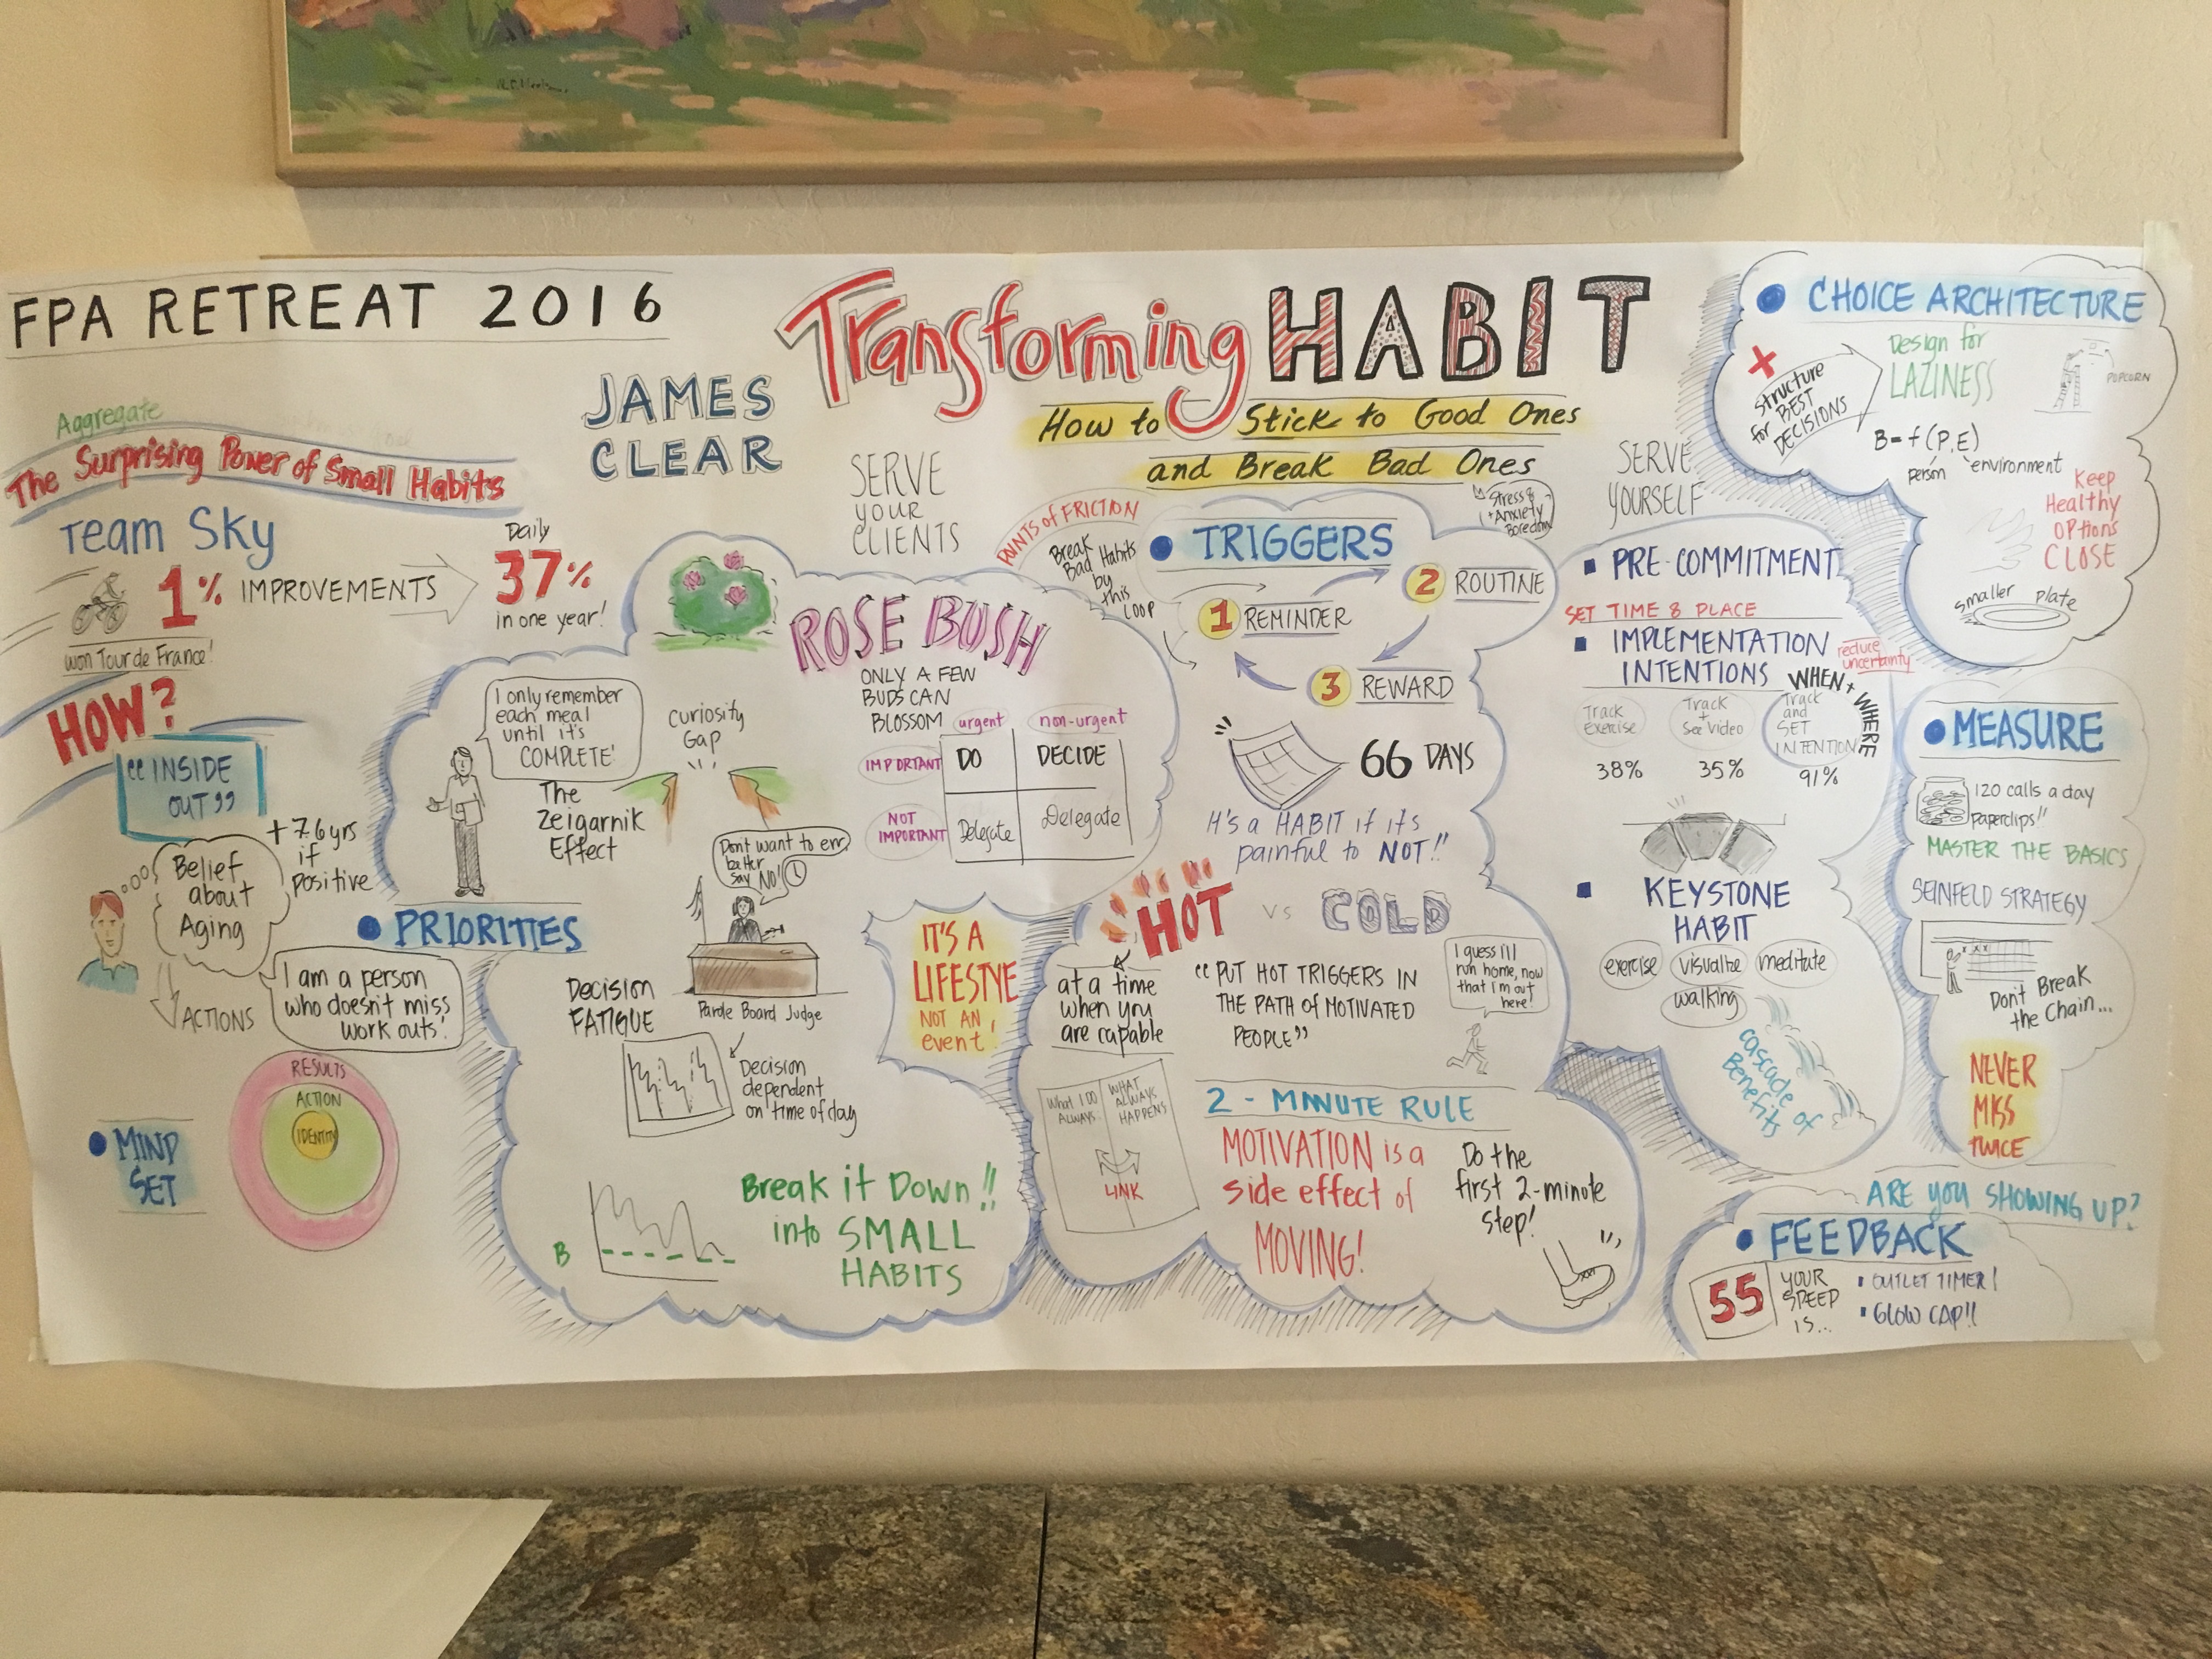 FPA RETREAT 2016
JAMES
CLEAR
Transforming HABIT
How to Stick to Good Ones
and Break Bad Ones
Aggregate
The Surprising Power of Small Habits
Team Sky
1% IMPROVEMENTS
won Tour de France!
Daily
37%
in one year!
HOW?
"INSIDE
OUT"
+7.6 yrs
if
positive
Belief
about
Aging
ACTIONS
I am a person
who doesn't miss
work outs!
RESULTS
ACTION
IDENTITY
MIND
SET
SERVE
YOUR
CLIENTS
ROSE BUSH
ONLY A FEW
BUDS CAN
BLOSSOM
urgent
non-urgent
IMPORTANT
DO
DECIDE
NOT
IMPORTANT
Delegate
Delegate
I only remember
each meal
until it's
COMPLETE!
The
Zeigarnik
Effect
Curiosity
Gap
PRIORITIES
Don't want to err,
better
say NO!
Parole Board Judge
Decision
FATIGUE
Decision
dependent
on time of day
B
Break it Down!!
into SMALL
HABITS
IT'S A
LIFESTYE
NOT AN
event!
POINTS of FRICTION
Break
Bad Habits
by
this
LOOP
TRIGGERS
Stress &
+ Anxiety
Boredom
1 REMINDER
2 ROUTINE
3 REWARD
66 DAYS
It's a HABIT if it's
painful to NOT!!
HOT vs COLD
at a time
when you
are capable
"PUT HOT TRIGGERS IN
THE PATH OF MOTIVATED
PEOPLE"
I guess I'll
run home, now
that I'm out
here!
What I DO
ALWAYS
WHAT
ALWAYS
HAPPENS
LINK
2-MINUTE RULE
MOTIVATION is a
side effect of
MOVING!
Do the
first 2-minute
step!
SERVE
YOURSELF
PRE-COMMITMENT
SET TIME & PLACE
IMPLEMENTATION
INTENTIONS
reduce
uncertainty
WHEN + WHERE
Track
Exercise
38%
Track
+
See Video
35%
Track
and
SET
INTENTION
91%
KEYSTONE
HABIT
exercise
visualize
meditate
walking
cascade of
Benefits
CHOICE ARCHITECTURE
Structure
for BEST
DECISIONS
Design for
LAZINESS
POPCORN
B = f (P, E)
person environment
Keep
Healthy
OPtions
CLOSE
smaller plate
MEASURE
120 calls a day
paperclips!!
MASTER THE BASICS
SEINFELD STRATEGY
x x x
Don't Break
the Chain...
NEVER
MISS
TWICE
ARE YOU SHOWING UP?
FEEDBACK
55
YOUR
SPEED
IS...
OUTLET TIMER!
GLOW CAP!!